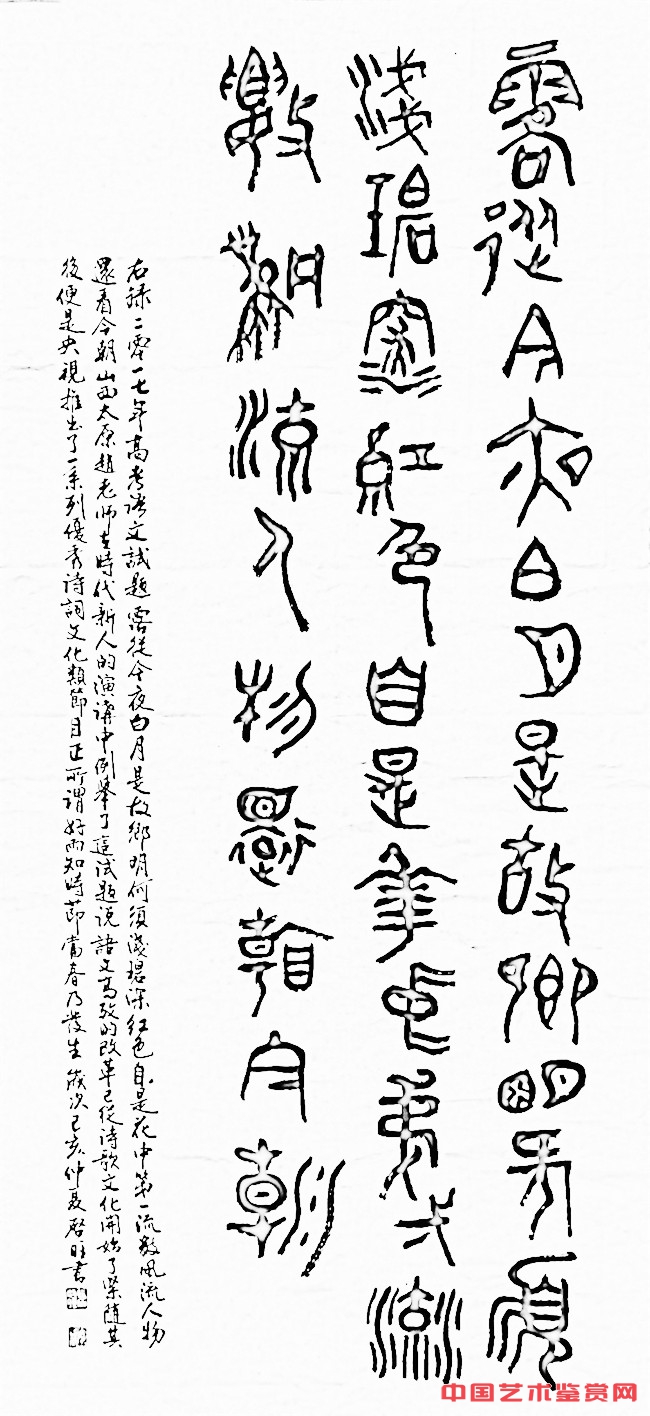 露從今夜白月是故鄉明何須
淺碧深紅色自是華中弟弌流
數風流人物還看今朝
右録二零一七年高考語文試題露從今夜白月是故鄉明何須淺碧深紅色自是花中第一流數風流人物
還看今朝山西太原趙老師在時代新人的演講中例舉了這試題說語文高攷的改革已從詩歌文化開始了緊隨其
後便是央視推出了一系列優秀詩詞文化類節目正所謂好雨知時節當春乃發生歲次己亥仲夏啓旺書
中国艺术鉴赏网